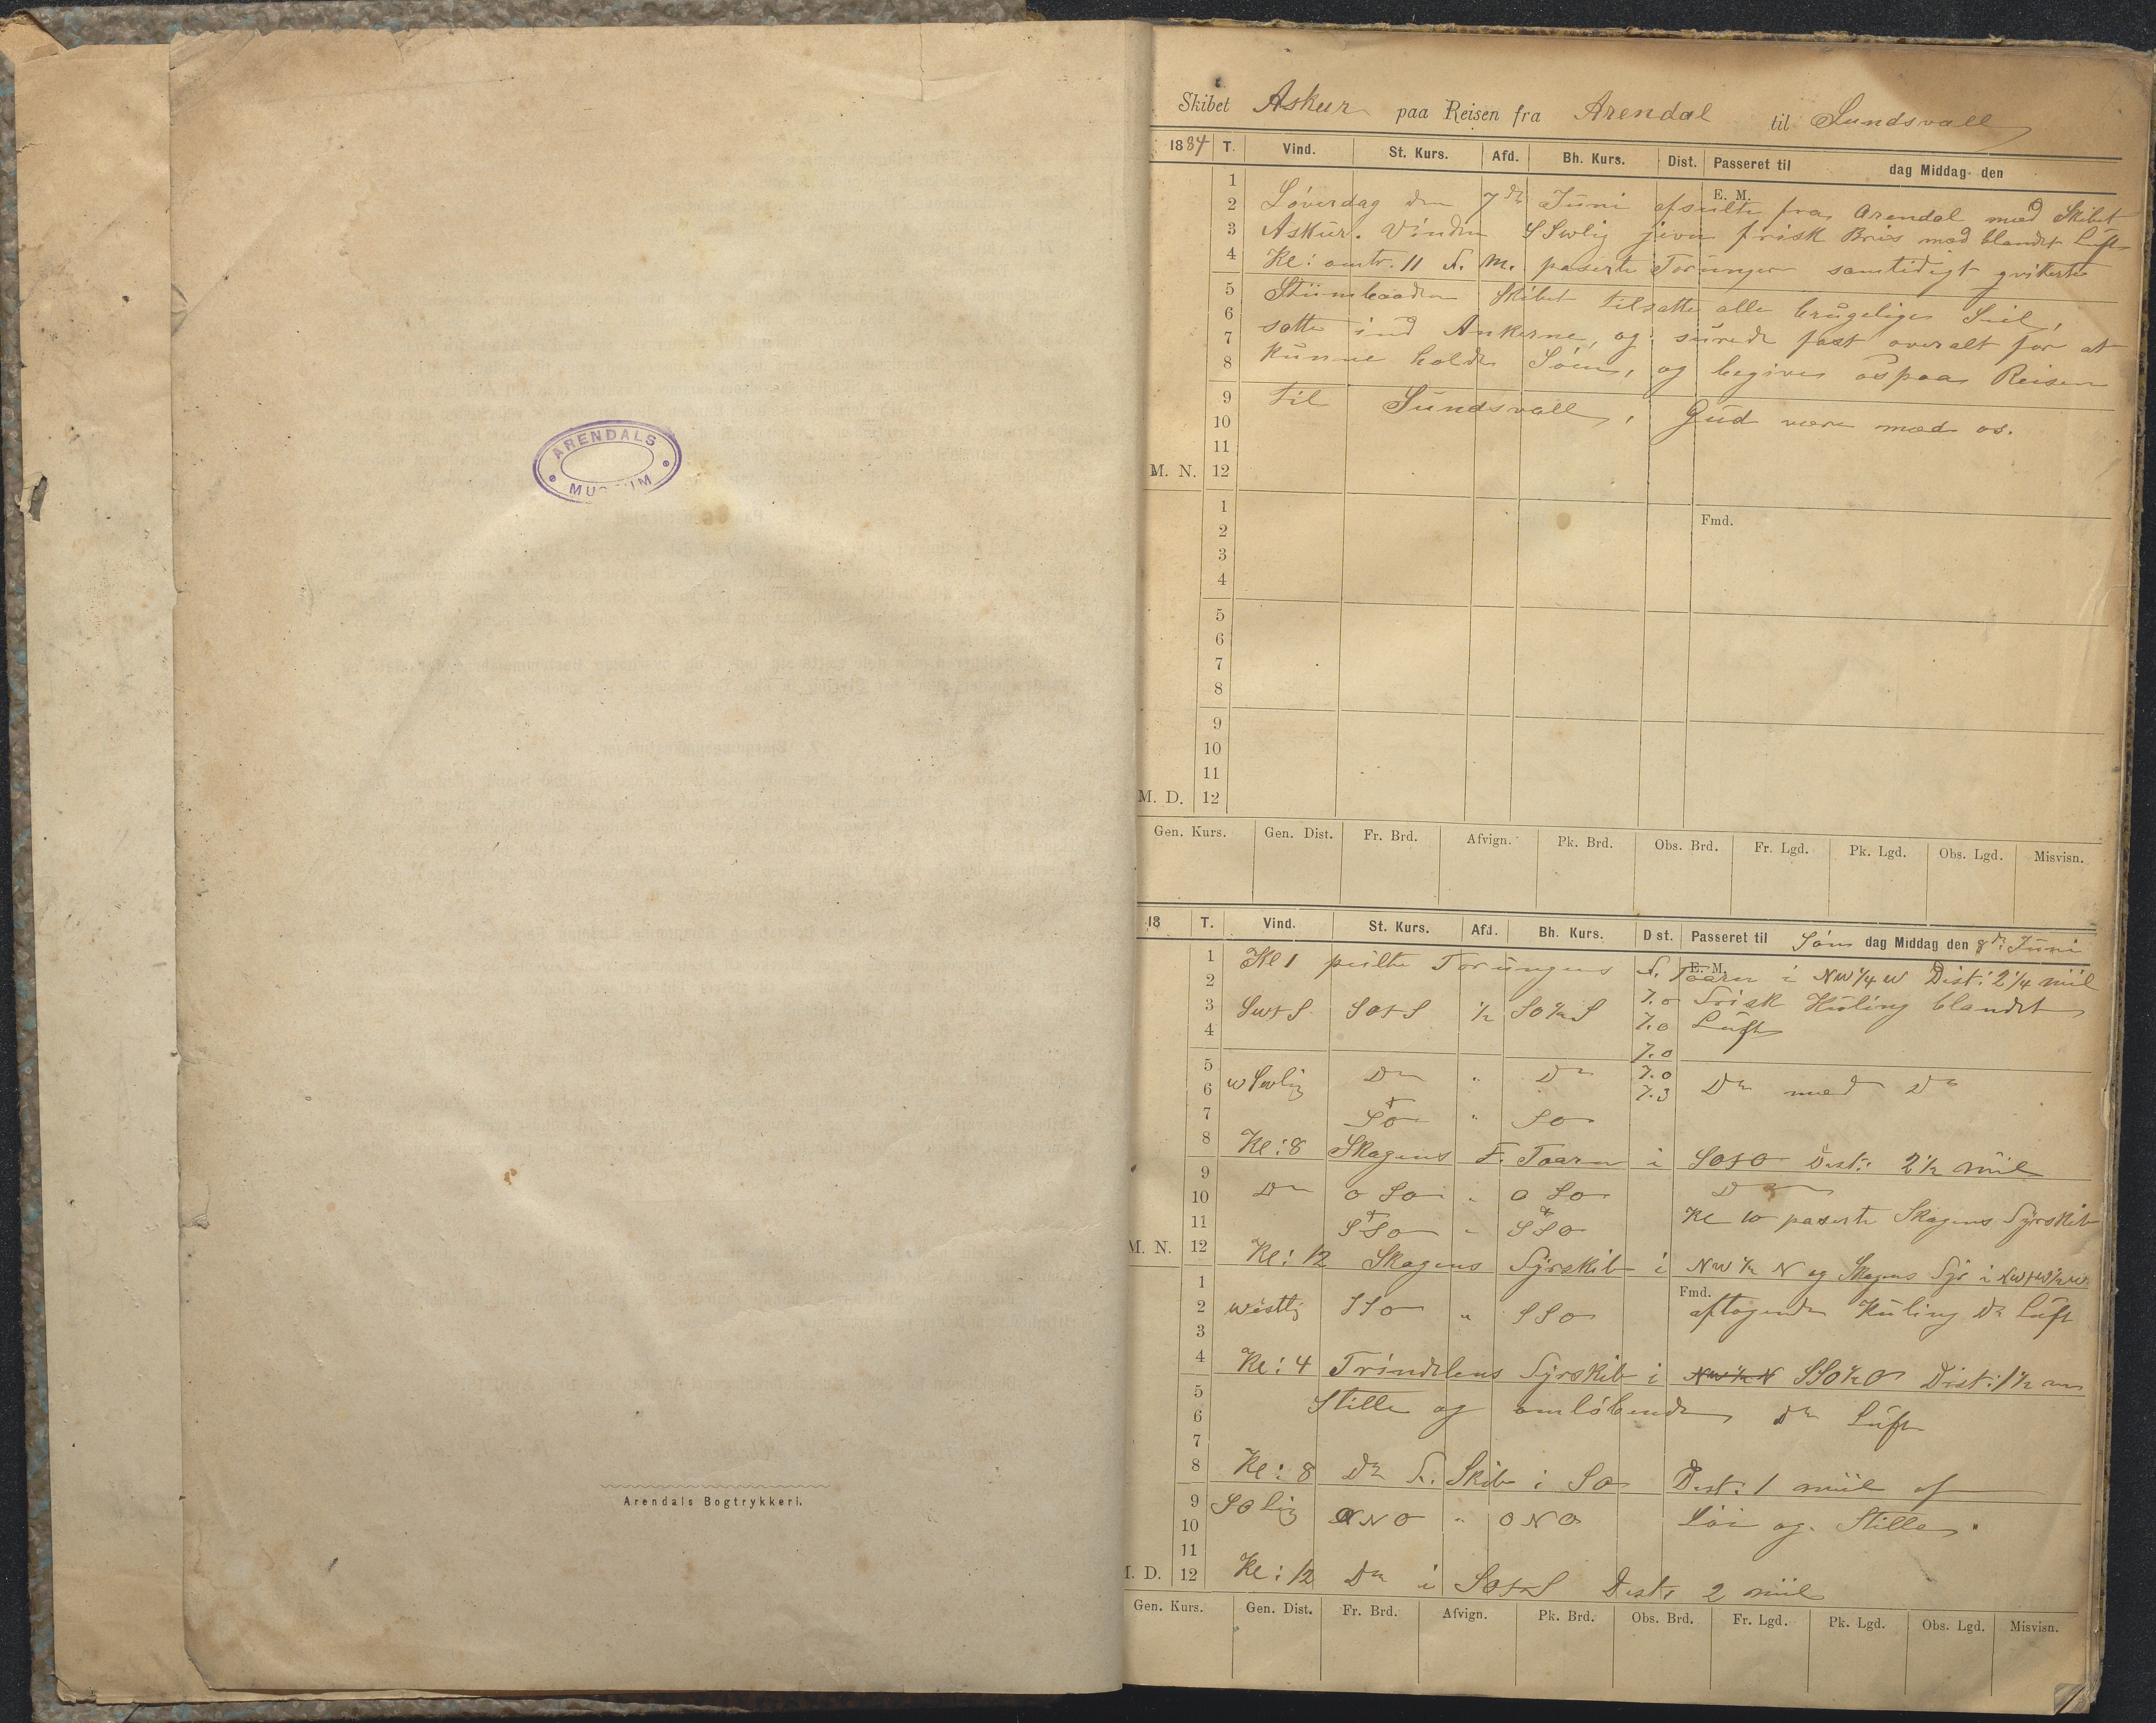 ARENDALS
MUSEUM
Arendals Bogtrykkeri.
Skibet Askur paa Reisen fra Arendal til Sundsvall
1884 T. Vind. St. Kurs. Afd. Bh. Kurs. Dist. Passeret til dag Middag den
E. M.
1
2 Löverdag den 7de Juni afseilte fra Arendal med Skibet
3 Askur. Vinden SSWlig jevn frisk Bris med blandet Luft
4 Kl: omtr. 11 F. M. paserte Torungen samtidigt qviterte
5 Stiimbaaden Skibet tilsatte alle brugelige Seil,
6
7 satte ind Ankerne, og surede fast overalt for at
8 kunne holde Söen, og begiver os paa Reisen
9 til Sundsvall, Gud være med os.
10
11
M. N. 12
1
2 Fmd.
3
4
5
6
7
8
9
10
11
M. D. 12
Gen. Kurs. Gen. Dist. Fr. Brd. Afvign. Pk. Brd. Obs. Brd. Fr. Lgd. Pk. Lgd. Obs. Lgd. Misvisn.
18 T. Vind. St. Kurs. Afd. Bh. Kurs. Dist. Passeret til Sön dag Middag den 8de Juni
E. M.
1 Kl 1 peilte Torungens F. Taarn i NW 1/4 W Dist: 2 1/4 miil
2 7.0 Frisk Kuling blandet
3 SWtS SOtS 1/2 SO 1/2 S 7.0 Luft
4 7.0
5 WSWlig Do " Do 7.0
6 7.3 Do med Do
7 SO " SO
8 Kl: 8 Skagens F. Taarn i SOtO Dist: 2 1/2 miil
9
10 Do O SO " O SO Do
11 SSO " SSO Kl 10 paserte Skagens Fyrskib
M. N. 12 Kl: 12 Skagens Fyrskib i NW 1/2 N og Skagens Fyr i NWtW 1/2 W
1 Fmd.
2 Westlig SSO " SSO aftagende Kuling Do Luft
3
4 Kl: 4 Trindelens Fyrskib i NW 1/2 N SSO 1/2 O Dist: 1 1/2 m
5 Stille og omlöbende Do Luft
6
7
8 Kl: 8 Do F. Skib i SO Dist. 1 miil af
9 SOlig ONO " ONO Löi og Stille
10
11
M. D. 12 Kl: 12 Do i SOtS Dist: 2 miil
Gen. Kurs. Gen. Dist. Fr. Brd. Afvign. Pk. Brd. Obs. Brd. Fr. Lgd. Pk. Lgd. Obs. Lgd. Misvisn.